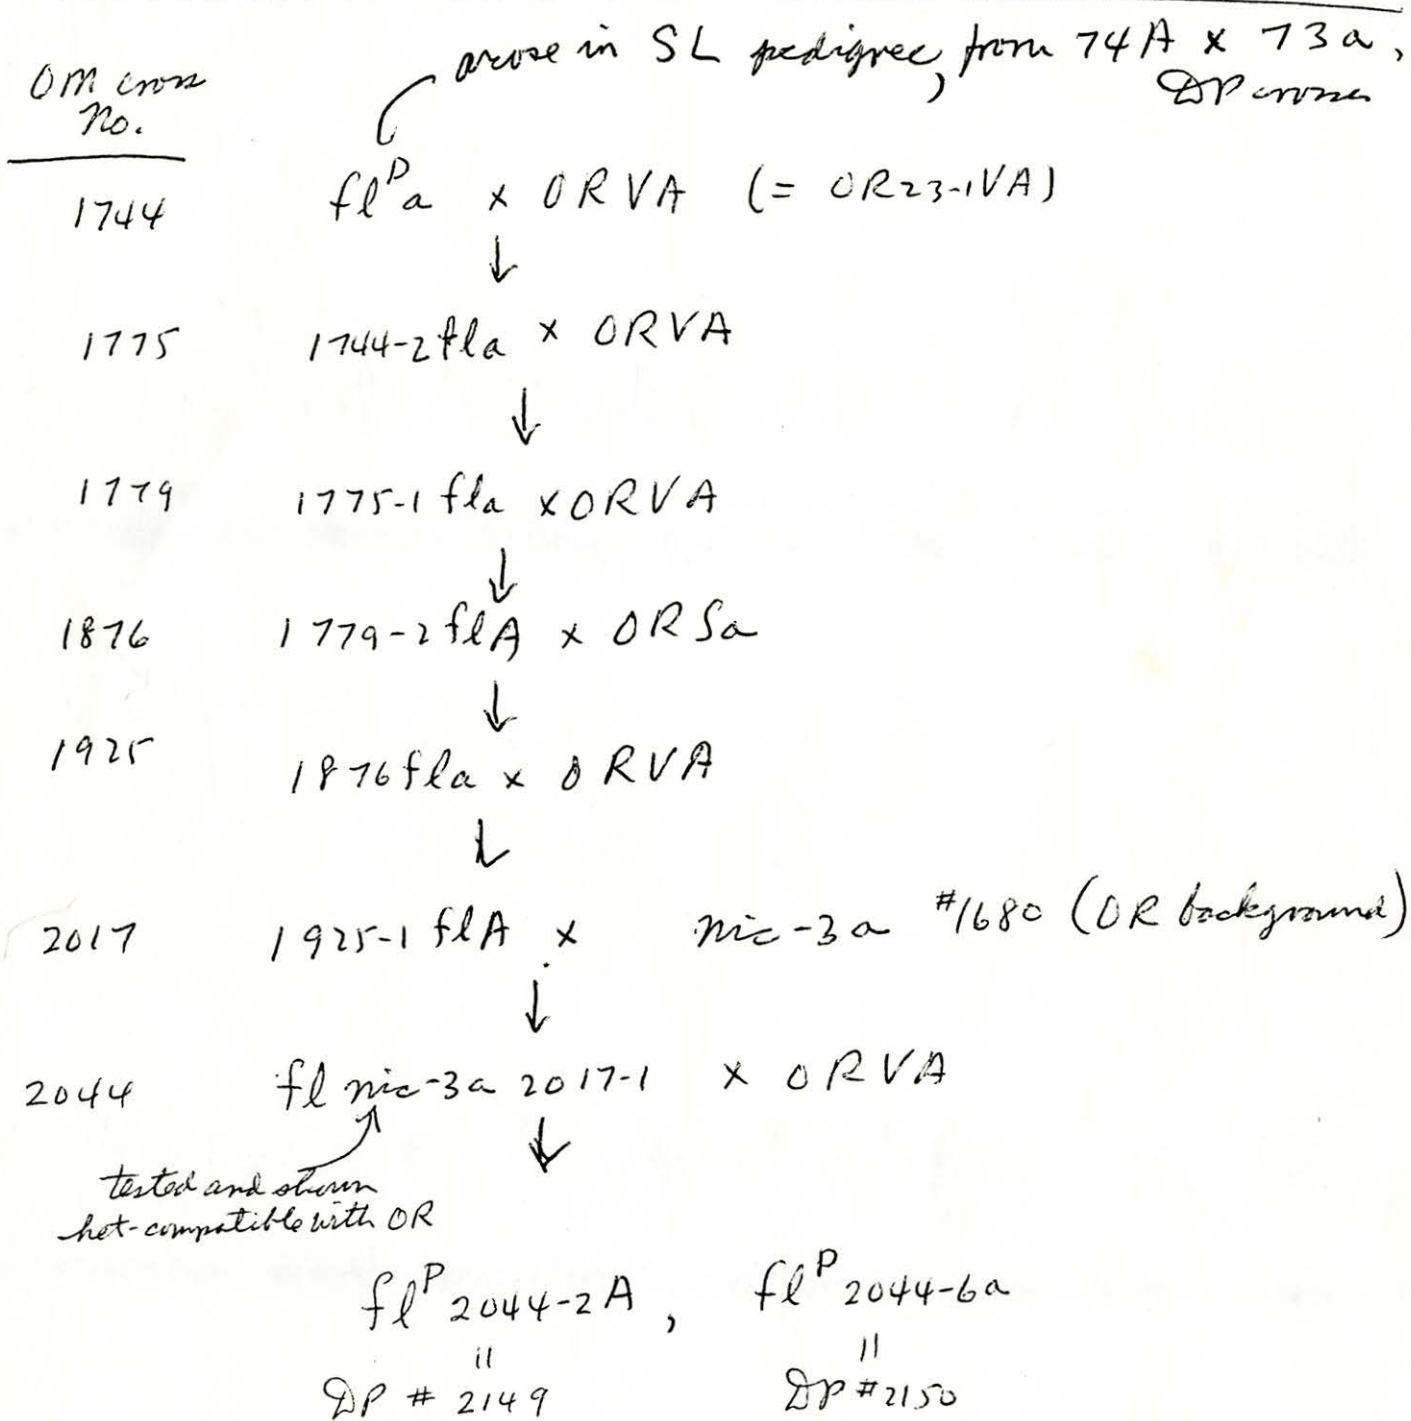 arose in SL pedigree, from 74A x 73a,
DP crosses
OM cross
No.
1744 fl^P a x ORVA (= OR23-1VA)
↓
1775 1744-2 fla x ORVA
↓
1779 1775-1 fla x ORVA
↓
1876 1779-2 flA x ORSa
↓
1925 1876 fla x ORVA
↓
2017 1925-1 flA x nic-3a #1680 (OR background)
↓
2044 fl nic-3a 2017-1 x ORVA
↓
tested and shown
het-compatible with OR
fl^P 2044-2A, fl^P 2044-6a
= =
DP # 2149 DP #2150